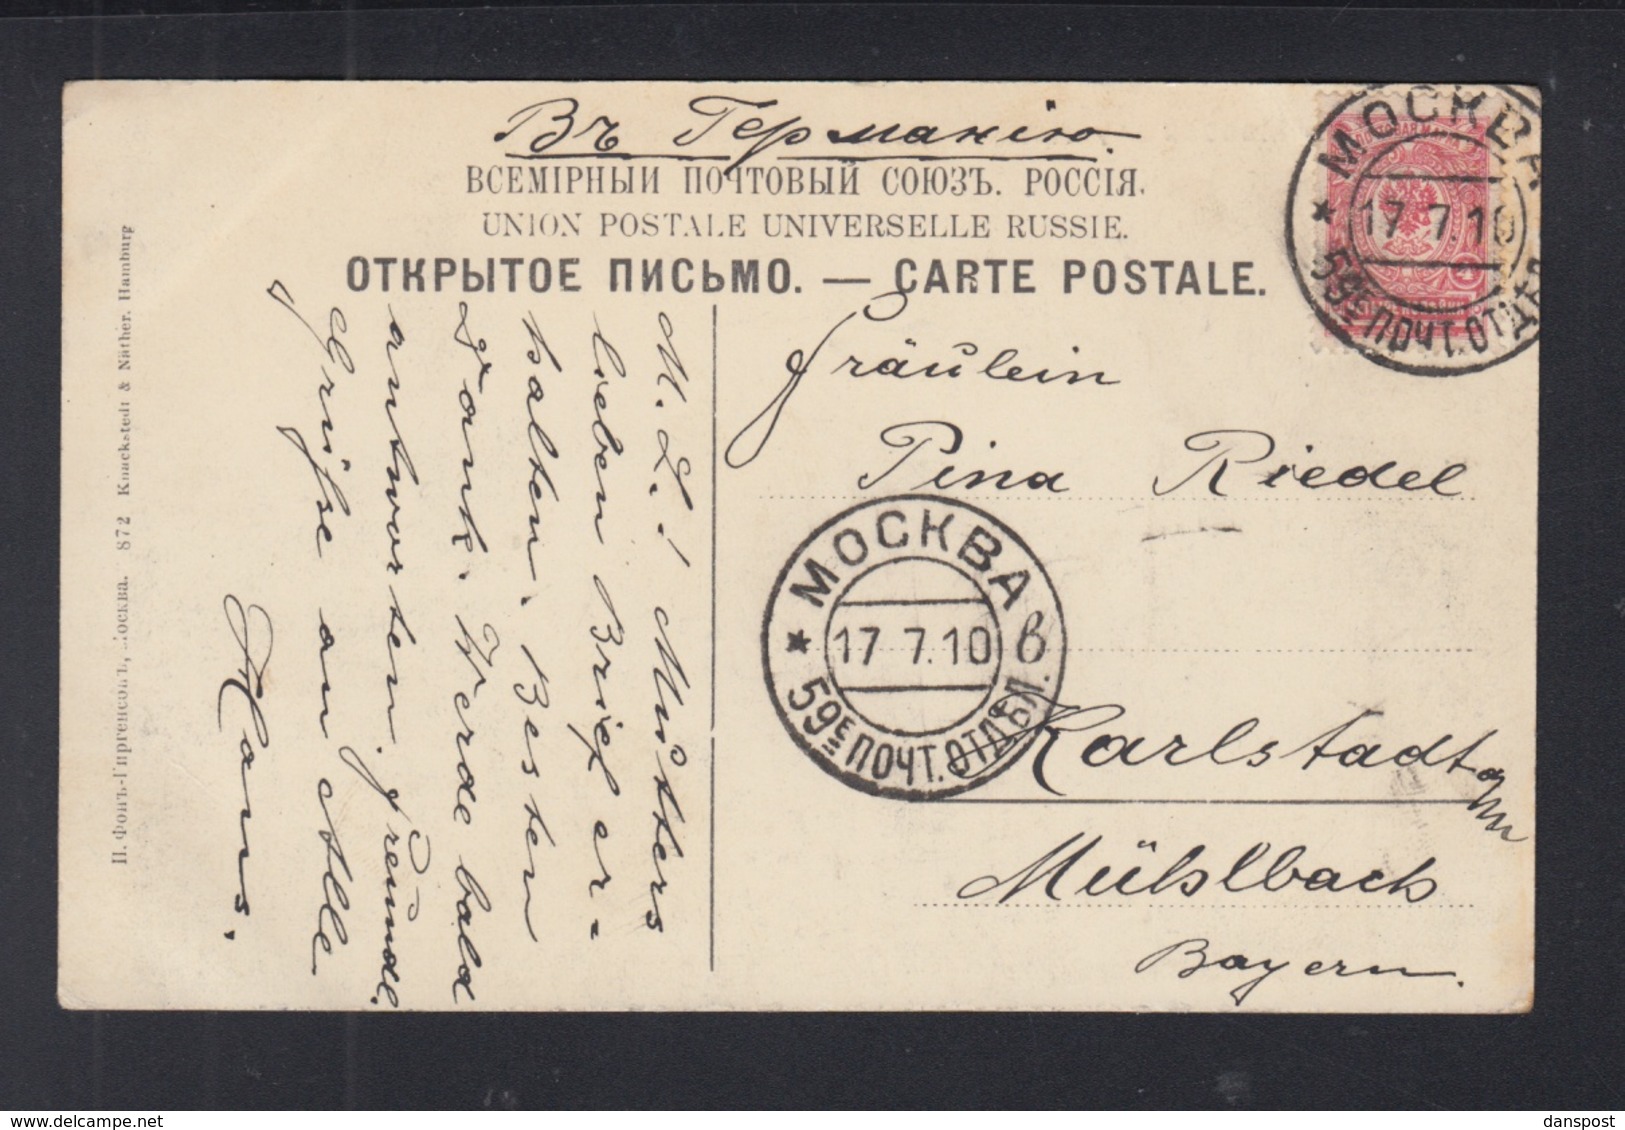 Въ Германію.
ВСЕМІРНЫЙ ПОЧТОВЫЙ СОЮЗЪ. РОССІЯ.
UNION POSTALE UNIVERSELLE RUSSIE.
ОТКРЫТОЕ ПИСЬМО. — CARTE POSTALE.
МОСКВА
17 7.10
59Е ПОЧТ. ОТДѢЛ.
M. L.! Mütters
lieben Brief er-
halten. Besten
Dank. Werde bald
antworten. Freundl.
Grüße an Alle
Hans.
Fräulein
Pina Riedel
МОСКВА
* 17 7.10 в
59Е ПОЧТ. ОТДѢЛ.
Karlstadt a/M
Mühlbach
Bayern.
872 Knackstedt & Näther. Hamburg
danspost